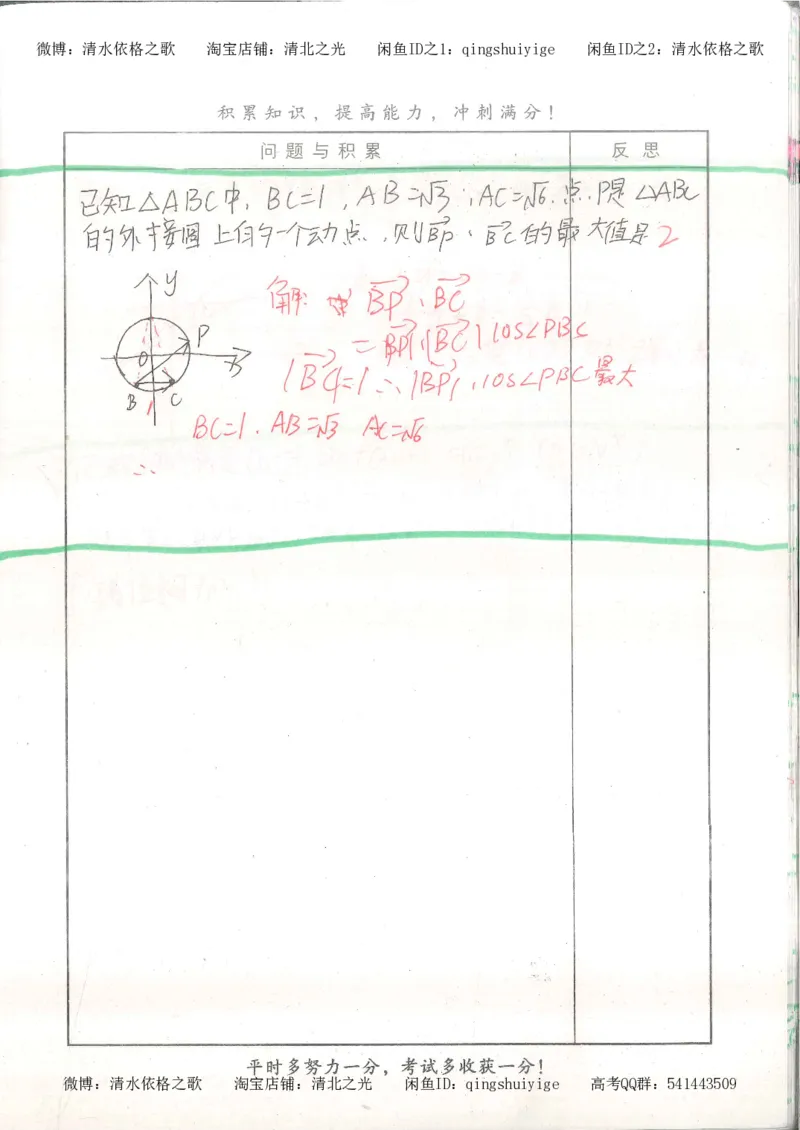 微博：清水依格之歌 淘宝店铺：清北之光 闲鱼ID之1：qingshuiyige 闲鱼ID之2：清水依格之歌
积累知识，提高能力，冲刺满分！
问题与积累 反思
已知△ABC中，BC=1，AB=√3，AC=√6．点P是△ABC
的外接圆上的一个动点，则BP·BC的最大值是2
y
解：由BP·BC
P
=|BP|·|BC|cos∠PBC
O
|BC|=1∴|BP|·cos∠PBC最大
B C
BC=1．AB=√3 AC=√6
∴
平时多努力一分，考试多收获一分！
微博：清水依格之歌 淘宝店铺：清北之光 闲鱼ID：qingshuiyige 高考QQ群：541443509